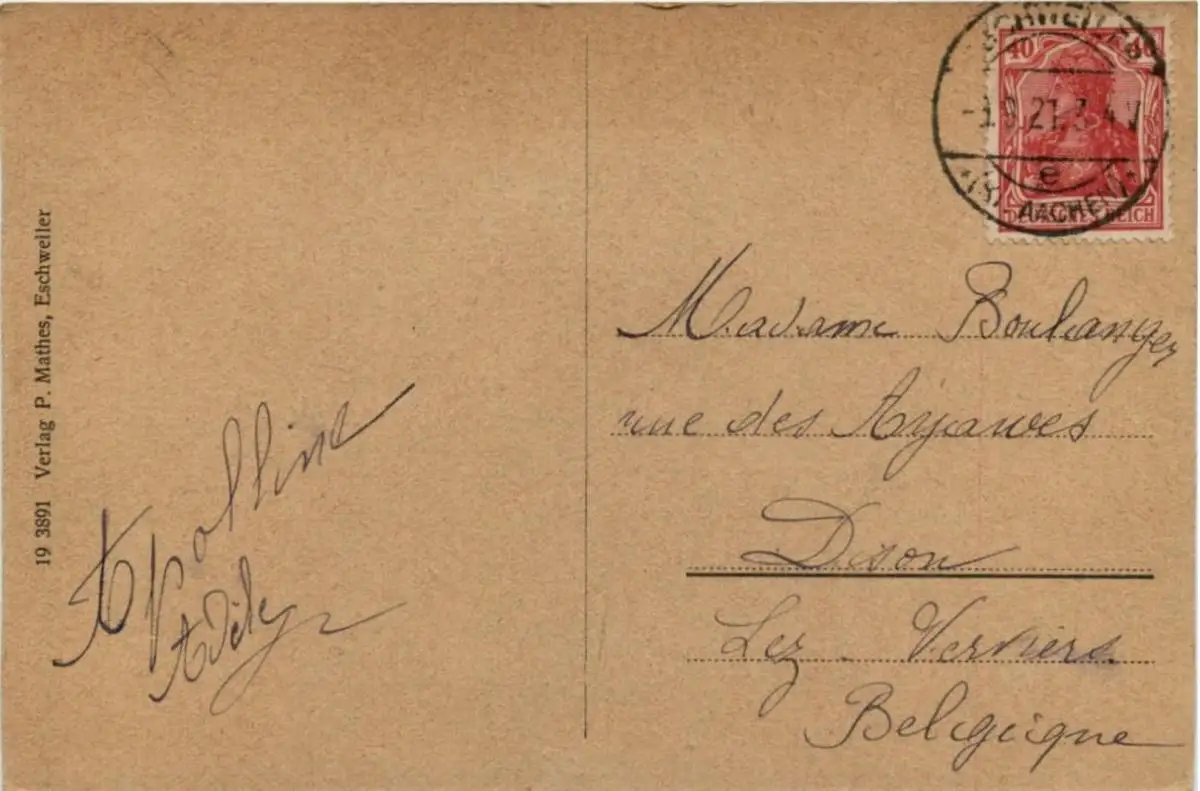 19 3891 Verlag P. Mathes, Eschweiler
Apolline
Adèle
40 40
DEUTSCHES REICH
-1.9.21.3-4 V
e
AACHEN
Madame Boulanger
rue des
Dison
Lez Verviers
Belgique